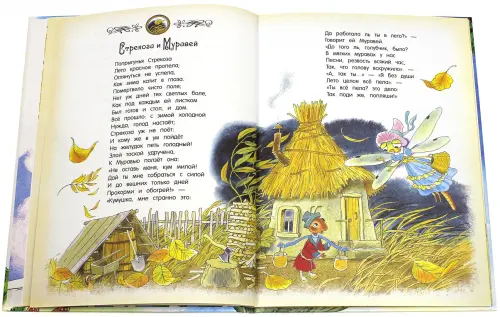 Стрекоза и Муравей
Попрыгунья Стрекоза
Лето красное пропела;
Оглянуться не успела,
Как зима катит в глаза.
Помертвело чисто поле;
Нет уж дней тех светлых боле,
Как под каждым ей листком
Был готов и стол, и дом.
Всё прошло: с зимой холодной
Нужда, голод настаёт;
Стрекоза уж не поёт:
И кому же в ум пойдёт
На желудок петь голодный!
Злой тоской удручена,
К Муравью ползёт она:
«Не оставь меня, кум милой!
Дай ты мне собраться с силой
И до вешних только дней
Прокорми и обогрей!» —
«Кумушка, мне странно это:
Да работала ль ты в лето?» —
Говорит ей Муравей.
«До того ль, голубчик, было?
В мягких муравах у нас
Песни, резвость всякий час,
Так, что голову вскружило». —
«А, так ты...» — «Я без души
Лето целое всё пела». —
«Ты всё пела? это дело:
Так поди же, попляши!»